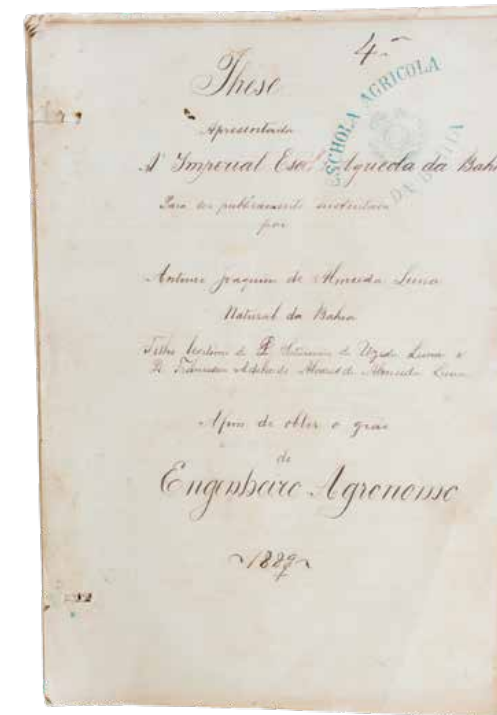 4ª
These
ESCHOLA AGRICOLA DA BAHIA
Apresentada
A' Imperial Escª Agricola da Bahi
Para ser publicamente sustentada
por
Antonio Joaquim de Almeida Luna
Natural da Bahia
Filho legitimo de de Uzeda Luna e
D. Francisca de Almeida Luna
Afim de obter o grau
de
Engenheiro Agronomo